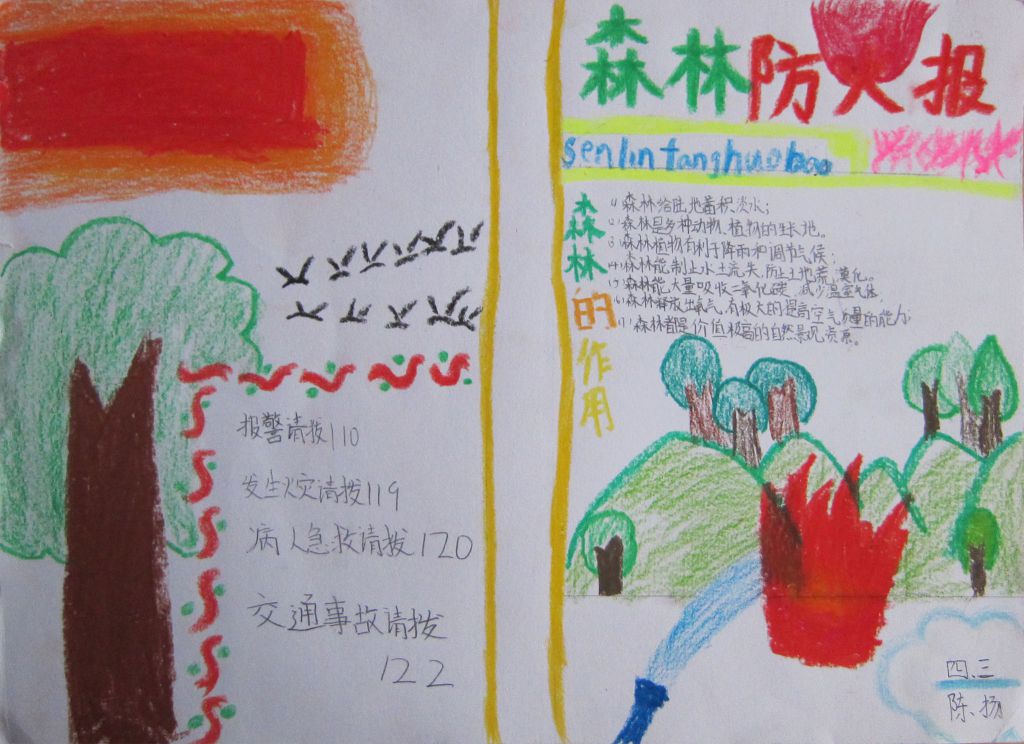 报警请拨110
发生火灾请拨119
病人急救请拨120
交通事故请拨
122
森林防火报
senlin fanghuobao
森林的作用
(1)森林给陆地蓄积淡水;
(2)森林是多种动物、植物的生长地。
(3)森林植物有利于降雨和调节气候;
(4)森林能制止水土流失,防止土地荒漠化。
(5)森林能大量吸收二氧化碳,减少温室气体
(6)森林释放出氧气,有极大的提高空气质量的能力;
(7)森林都是价值极高的自然景观资源。
四、三
陈扬